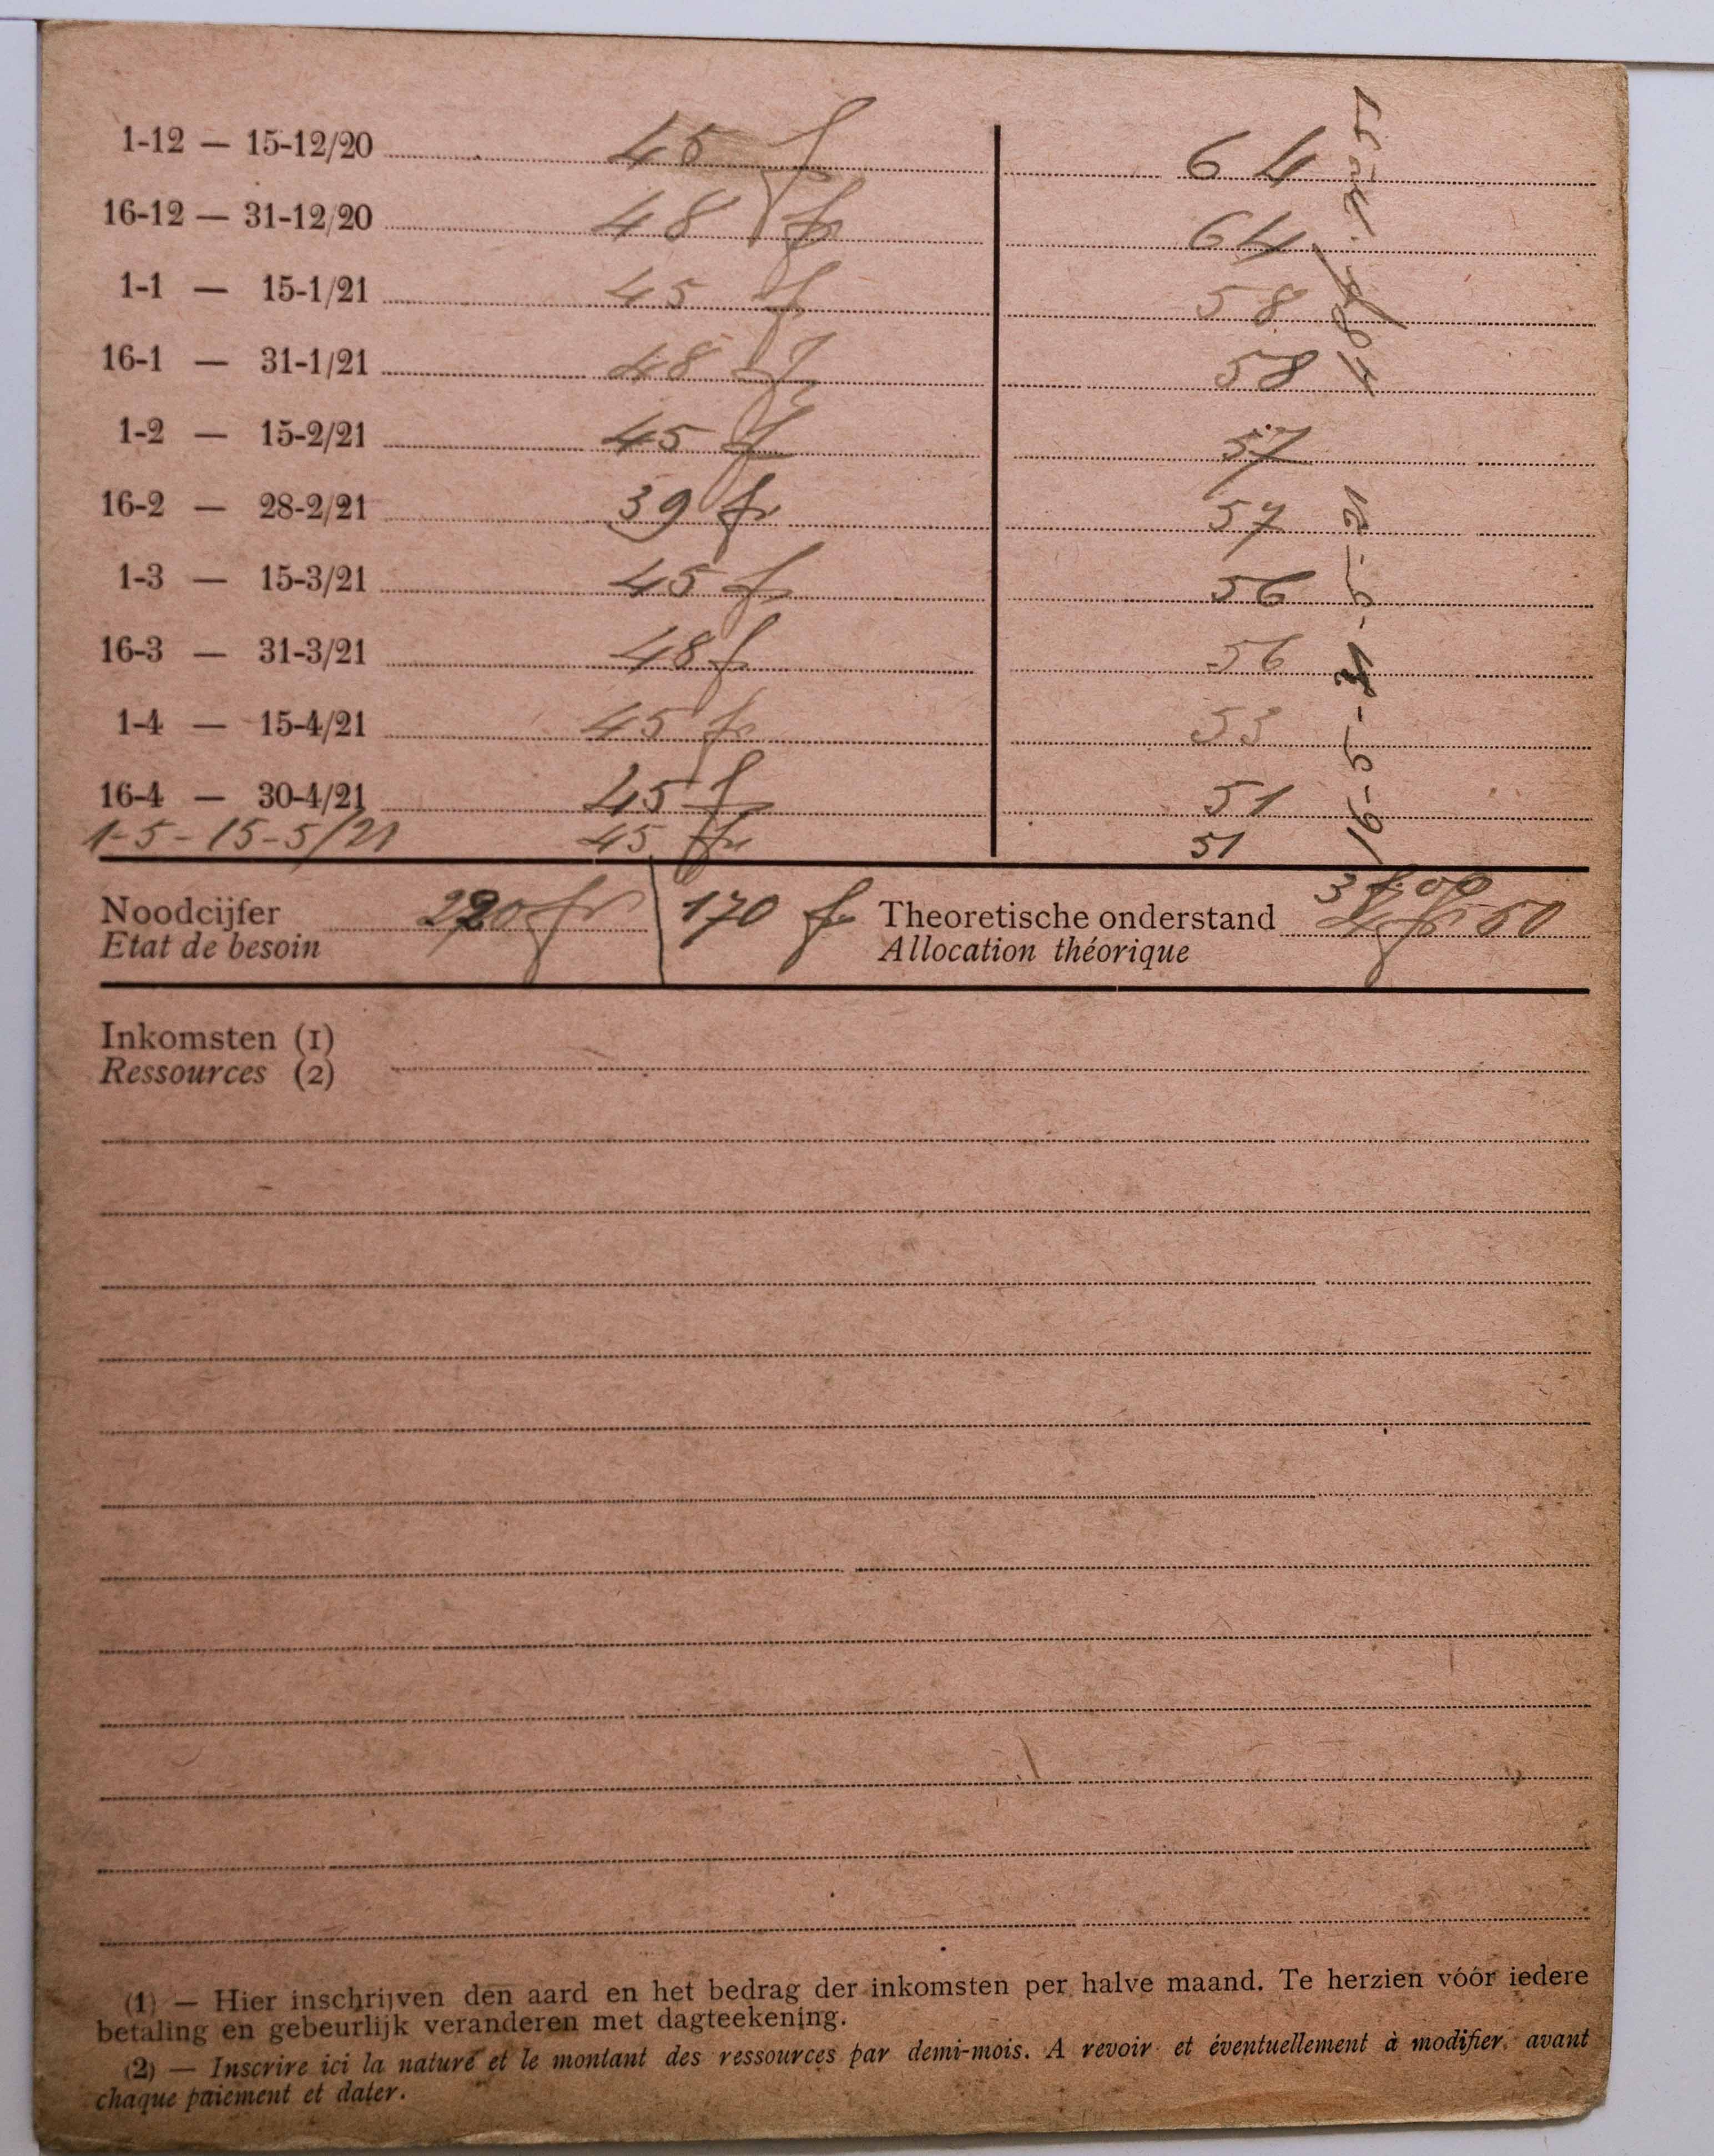 1-12 — 15-12/20 45 f 64
16-12 — 31-12/20 48 fr 64
1-1 — 15-1/21 45 f 58
16-1 — 31-1/21 48 f 58
1-2 — 15-2/21 45 f 57
16-2 — 28-2/21 39 fr 57
1-3 — 15-3/21 45 f 56
16-3 — 31-3/21 48 f 56
1-4 — 15-4/21 45 fr 53
16-4 — 30-4/21 45 f 51
1-5-15-5/21 45 fr 51
16-5-21-5-21
Noodcijfer 220 fr 170 fr Theoretische onderstand 60
Etat de besoin Allocation théorique
Inkomsten (1)
Ressources (2)
(1) — Hier inschrijven den aard en het bedrag der inkomsten per halve maand. Te herzien vóór iedere
betaling en gebeurlijk veranderen met dagteekening.
(2) — Inscrire ici la nature et le montant des ressources par demi-mois. A revoir et éventuellement à modifier avant
chaque paiement et dater.